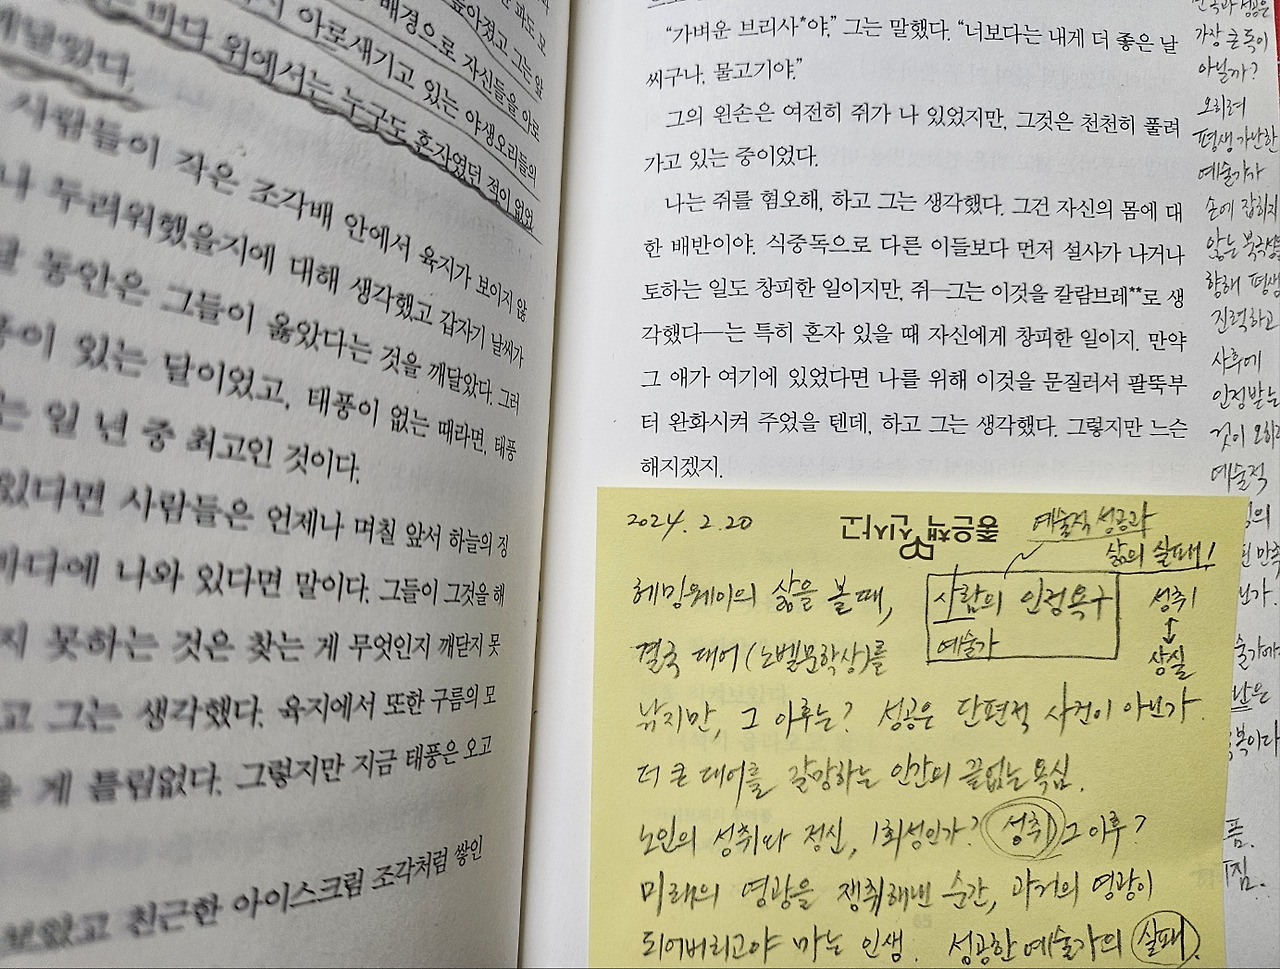 바다 위에서는 누구도 혼자였던 적이 없었
사람들이 작은 조각배 안에서 육지가 보이지 않
나 두려워했을지에 대해 생각했고 갑자기 날씨가
달 동안은 그들이 옳았다는 것을 깨달았다. 그러
풍이 있는 달이었고, 태풍이 없는 때라면, 태풍
는 일 년 중 최고인 것이다.
있다면 사람들은 언제나 며칠 앞서 하늘의 징
바다에 나와 있다면 말이다. 그들이 그것을 해
지 못하는 것은 찾는 게 무엇인지 깨닫지 못
고 그는 생각했다. 육지에서 또한 구름의 모
을 게 틀림없다. 그렇지만 지금 태풍은 오고
보았고 친근한 아이스크림 조각처럼 쌓인
“가벼운 브리사*야,” 그는 말했다. “너보다는 내게 더 좋은 날
씨구나, 물고기야.”
그의 왼손은 여전히 쥐가 나 있었지만, 그것은 천천히 풀려
가고 있는 중이었다.
나는 쥐를 혐오해, 하고 그는 생각했다. 그건 자신의 몸에 대
한 배반이야. 식중독으로 다른 이들보다 먼저 설사가 나거나
토하는 일도 창피한 일이지만, 쥐—그는 이것을 칼람브레**로 생
각했다—는 특히 혼자 있을 때 자신에게 창피한 일이지. 만약
그 애가 여기에 있었다면 나를 위해 이것을 문질러서 팔뚝부
터 완화시켜 주었을 텐데, 하고 그는 생각했다. 그렇지만 느슨
해지겠지.
가장 큰 독이
아닐까?
오히려
평생 가난한
예술가가
손에 잡히지
않는
향해 평생
진력하고
사후에
인정받는
것이 오히려
예술적
2024. 2. 20
좋은책 신사고
예술적 성공과
삶의 실패!
헤밍웨이의 삶을 볼 때,
사람의 인정욕구
예술가
성취
↕
상실
결국 대어(노벨문학상)를
낚지만, 그 이후는? 성공은 단편적 사건이 아닌가
더 큰 대어를 갈망하는 인간의 끝없는 욕심.
노인의 성취와 정신, 1회성인가? 성취 그 이후?
미래의 영광을 쟁취해낸 순간, 과거의 영광이
되어버리고야 마는 인생. 성공한 예술가의 실패.